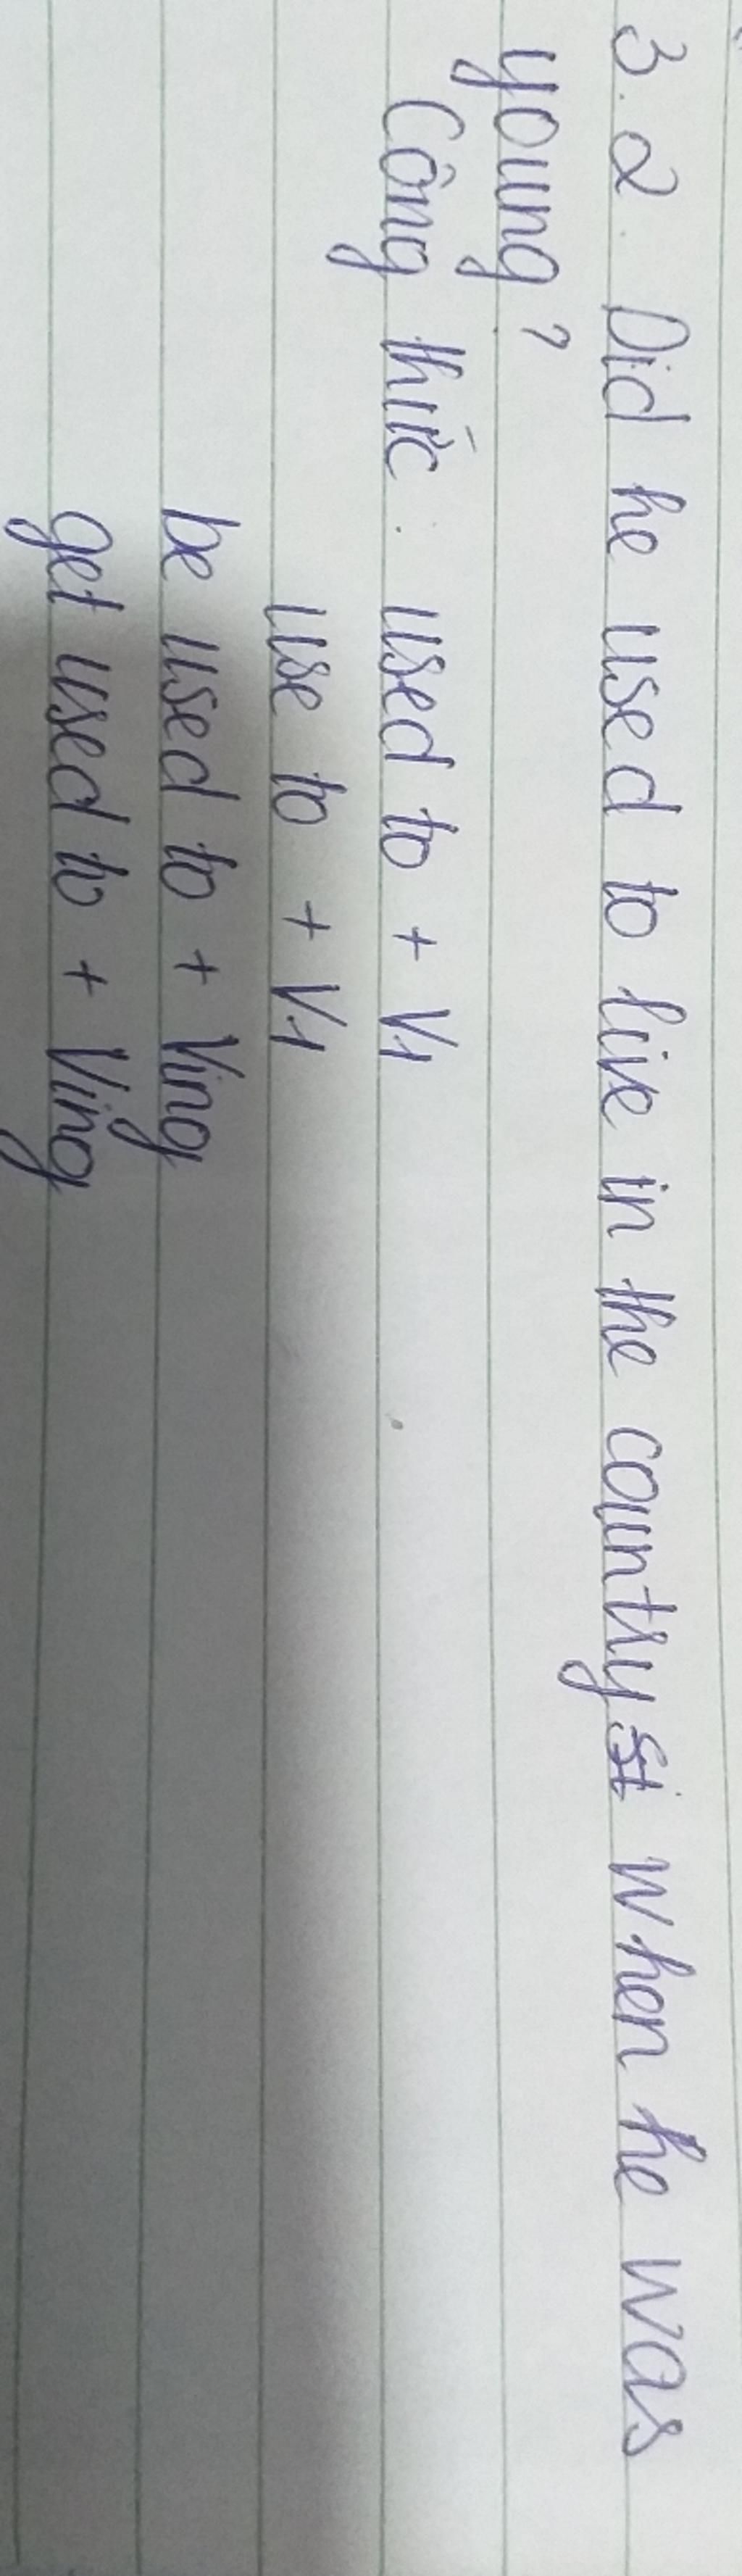 3.2. Did he used to live in the country when he was
young?
Công thức: used to + V1
use to + V1
be used to + Ving
get used to + Ving